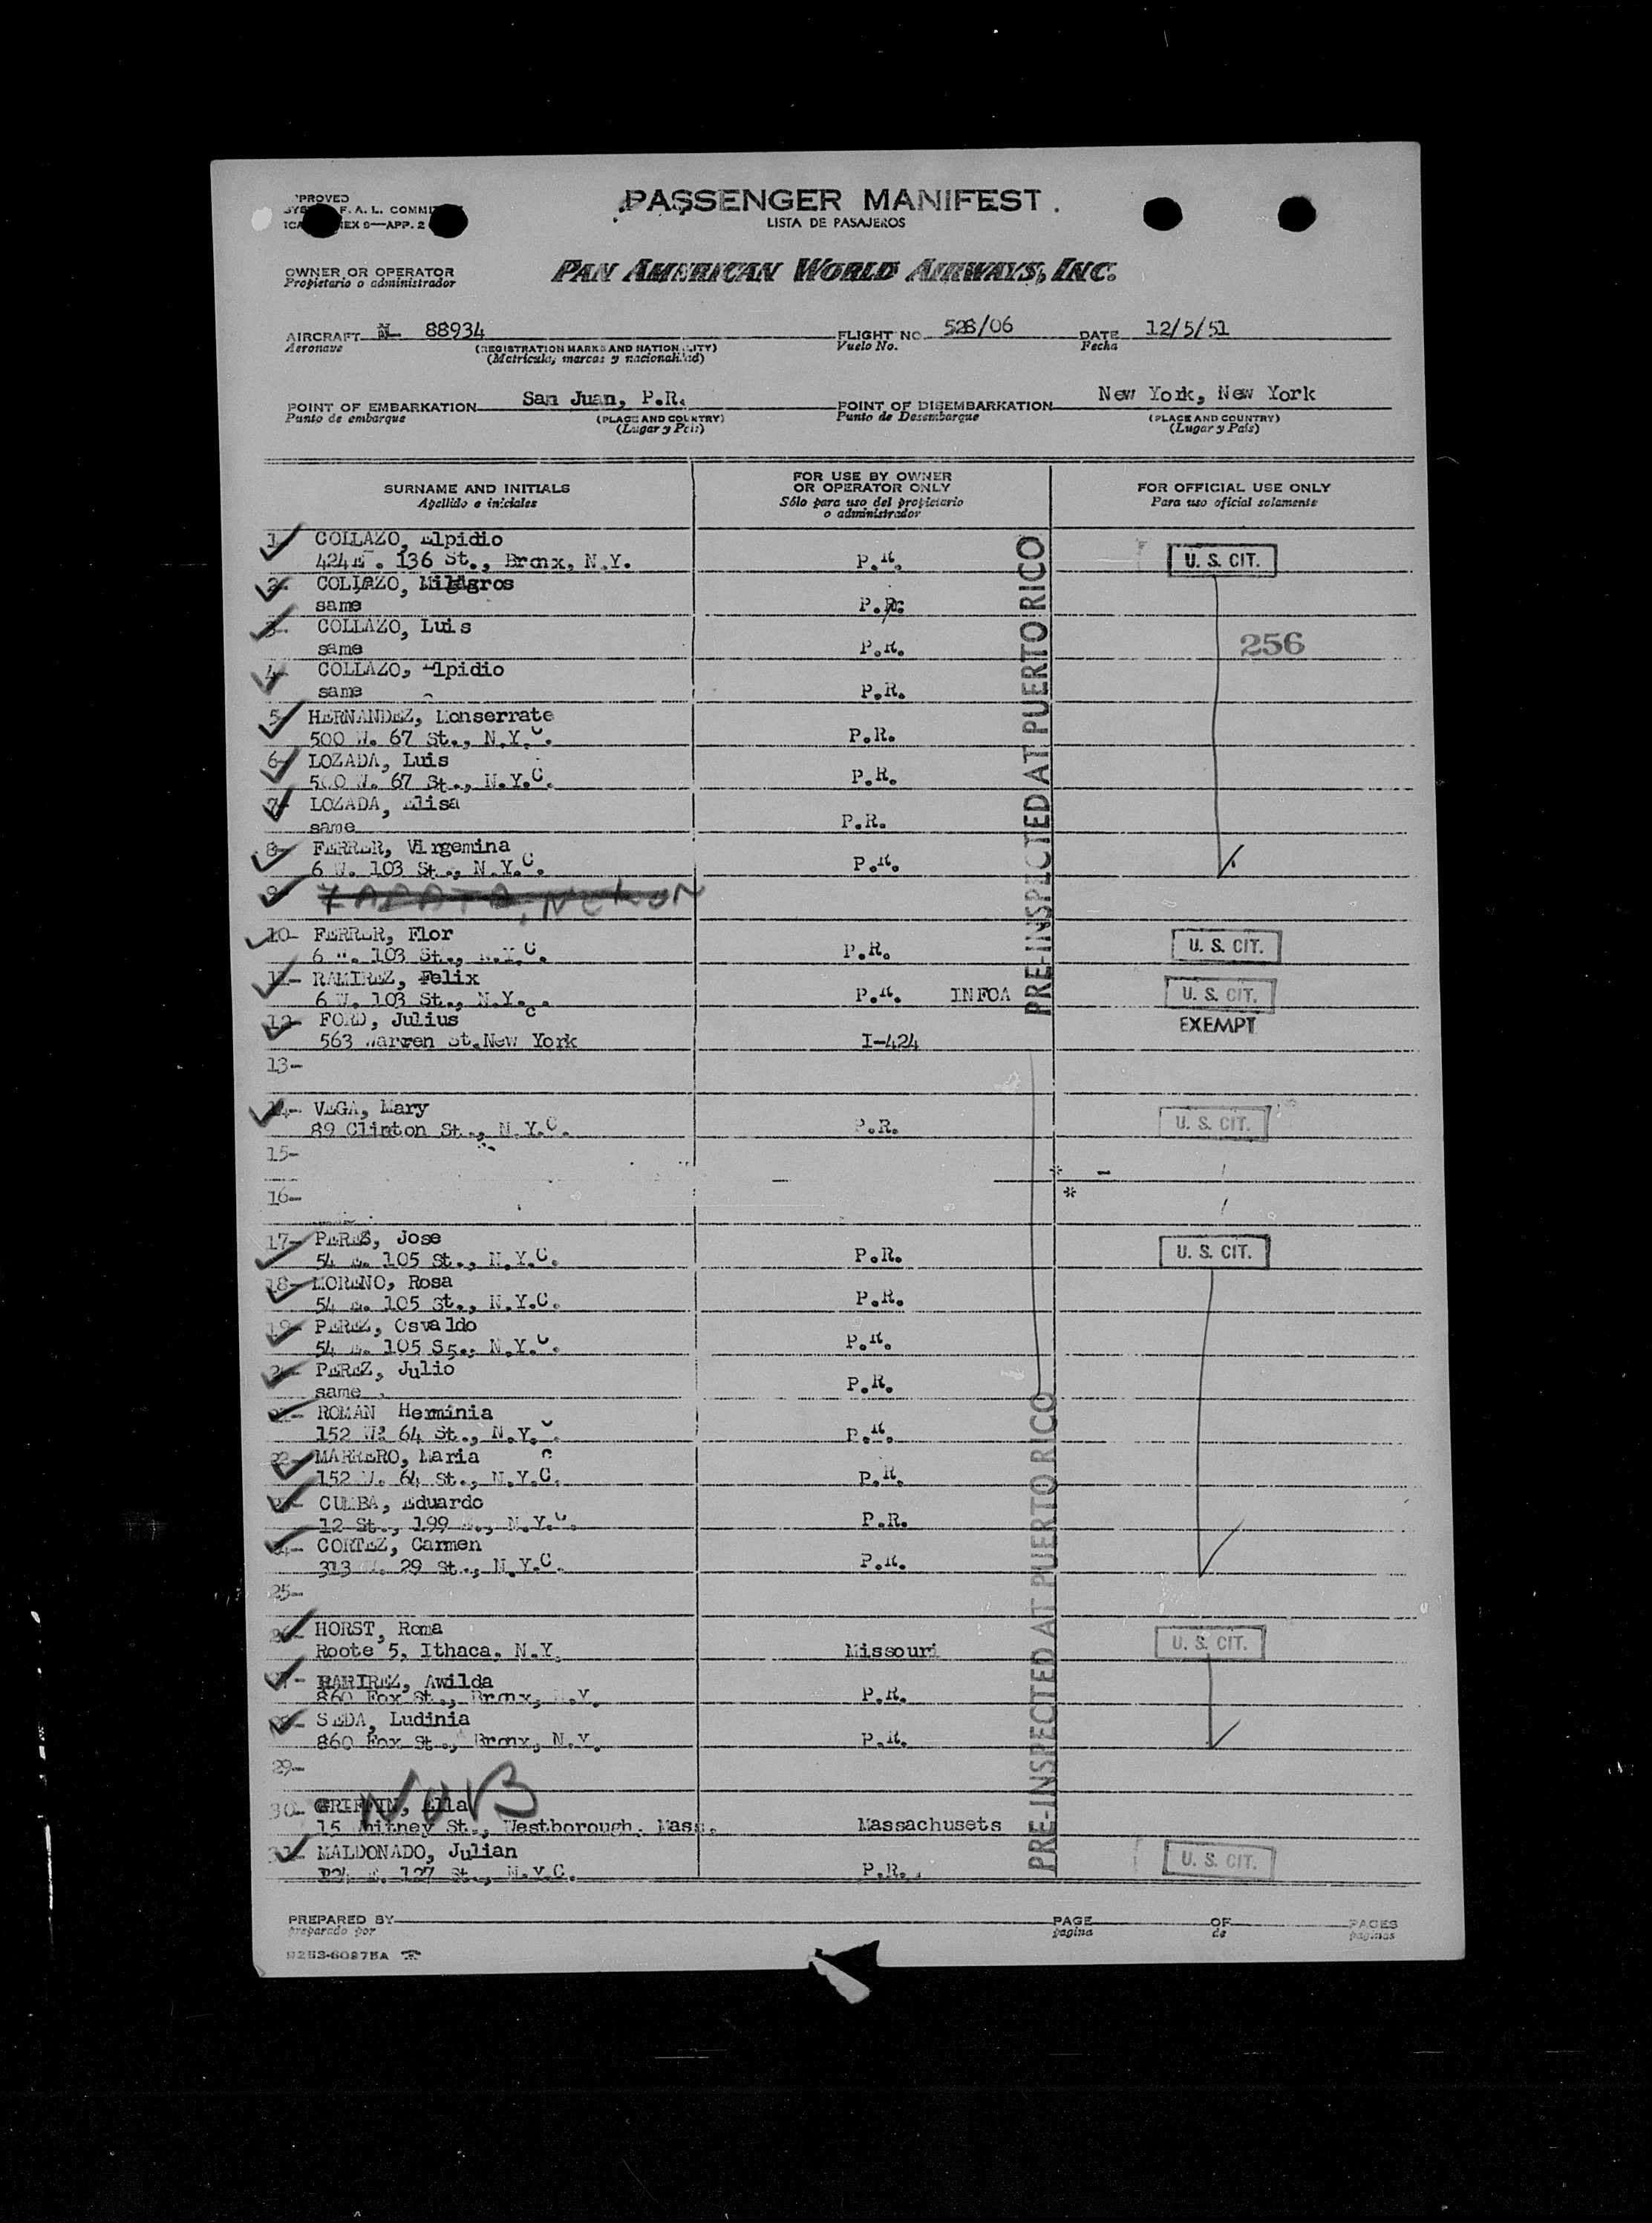 PASSENGER MANIFEST
LISTA DE PASAJEROS
F. A. L. COMMI
EX 9—APP. 2
OWNER OR OPERATOR
Propietario o administrador
PAN AMERICAN WORLD AIRWAYS, INC.
AIRCRAFT N 88934
Aeronave
(REGISTRATION MARKS AND NATIONALITY)
(Matricula, marcas y nacionalidad)
FLIGHT NO. 528/06
Vuelo No.
DATE 12/5/51
Fecha
POINT OF EMBARKATION San Juan, P.R.
Punto de embarque
(PLACE AND COUNTRY)
(Lugar y País)
POINT OF DISEMBARKATION New York, New York
Punto de Desembarque
(PLACE AND COUNTRY)
(Lugar y País)
SURNAME AND INITIALS
Apellido e iniciales
FOR USE BY OWNER
OR OPERATOR ONLY
Sólo para uso del propietario
o administrador
FOR OFFICIAL USE ONLY
Para uso oficial solamente
PRE-INSPECTED AT PUERTO RICO
1 COLLAZO, Elpidio
424 E. 136 St., Bronx, N.Y. P.R. U. S. CIT.
2- COLLAZO, Milagros
same P.R.
3- COLLAZO, Luis
same P.R. 256
4- COLLAZO, Elpidio
same P.R.
5 HERNANDEZ, Monserrate
500 W. 67 St., N.Y.C. P.R.
6- LOZADA, Luis
500 W. 67 St., N.Y.C. P.R.
7- LOZADA, Elisa
same P.R.
8- FERRER, Virgemina
6 W. 103 St., N.Y.C. P.R.
9- ZAPATA, NELSON
10- FERRER, Flor
6 W. 103 St., N.Y.C. P.R. U. S. CIT.
11- RAMIREZ, Felix
6 W. 103 St., N.Y.C. P.R. INFOA U. S. CIT.
12- FORD, Julius EXEMPT
563 Warren St. New York I-424
13-
14- VEGA, Mary
89 Clinton St., N.Y.C. P.R. U. S. CIT.
15-
16-
17- PEREZ, Jose
54 E. 105 St., N.Y.C. P.R. U. S. CIT.
18- MORENO, Rosa
54 E. 105 St., N.Y.C. P.R.
19- PEREZ, Osvaldo
54 E. 105 S5., N.Y.C. P.R.
20- PEREZ, Julio
same P.R.
21- ROMAN Herminia
152 W. 64 St., N.Y.C. P.R.
22- MARRERO, Maria
152 W. 64 St., N.Y.C. P.R.
23- CUMBA, Eduardo
12 St., 199 E., N.Y.C. P.R.
24- CORTEZ, Carmen
313 W. 29 St., N.Y.C. P.R.
25-
26- HORST, Roma
Roote 5, Ithaca, N.Y. Missouri U. S. CIT.
27- RAMIREZ, Awilda
860 Fox St., Bronx, N.Y. P.R.
28- SEDA, Ludinia
860 Fox St., Bronx, N.Y. P.R.
29-
30- GRIFFIN, Ella
15 Whitney St., Westborough, Mass. Massachusets
31- MALDONADO, Julian
E. 127 St., N.Y.C. P.R. U. S. CIT.
PRE-INSPECTED AT PUERTO RICO
PREPARED BY
preparado por
PAGE OF PAGES
pagina de paginas